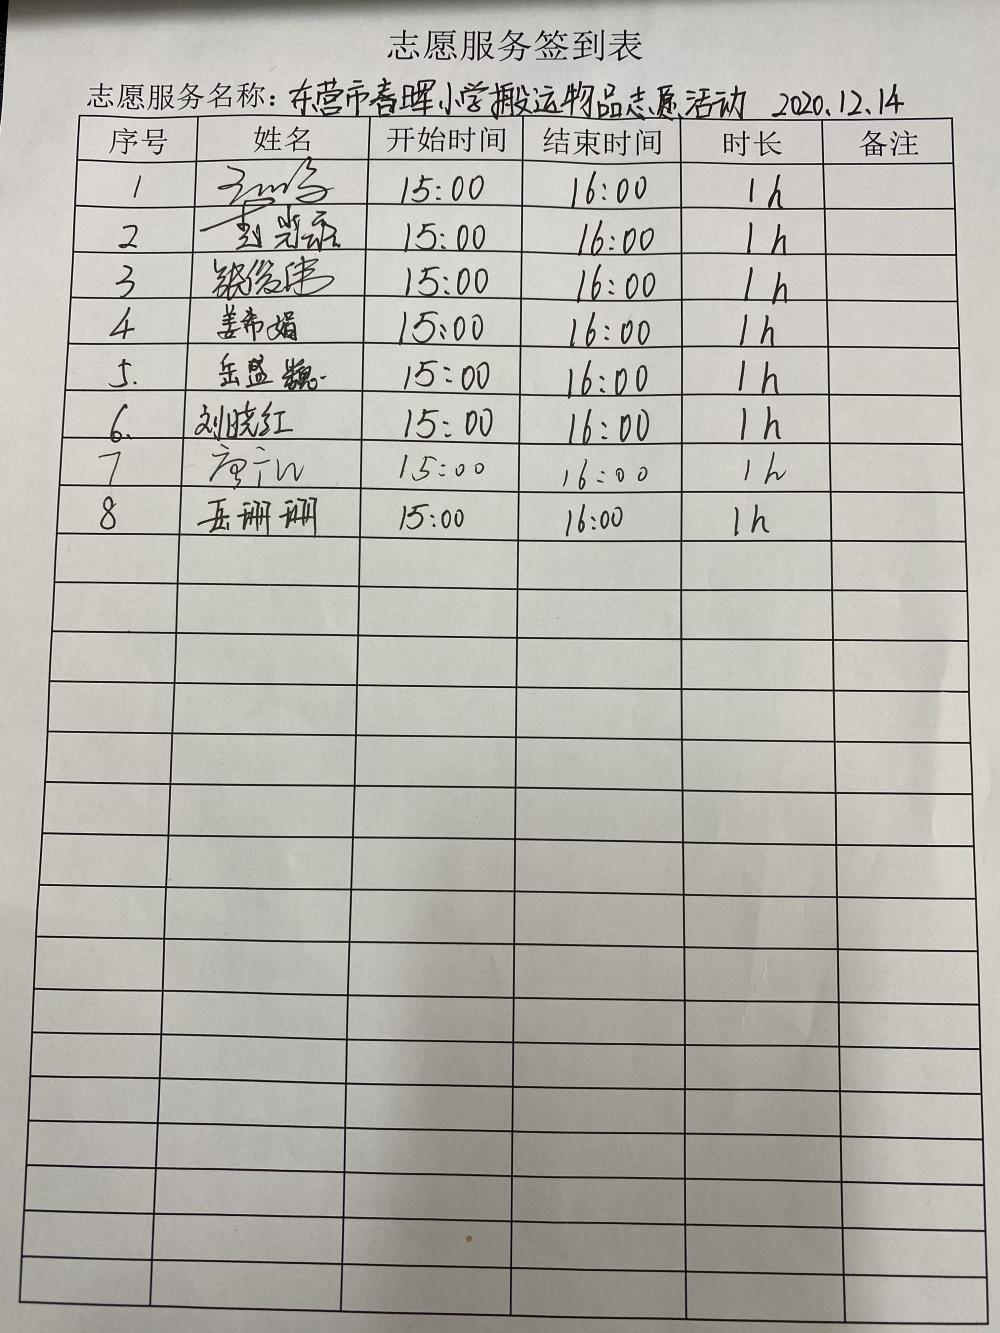 志愿服务签到表
志愿服务名称：东营市春晖小学搬运物品志愿活动 2020.12.14
序号 姓名 开始时间 结束时间 时长 备注
1 15:00 16:00 1h
2 15:00 16:00 1h
3 张俊伟 15:00 16:00 1h
4 姜希娟 15:00 16:00 1h
5. 岳盛 15:00 16:00 1h
6. 刘晓红 15:00 16:00 1h
7 15:00 16:00 1h
8 岳珊珊 15:00 16:00 1h